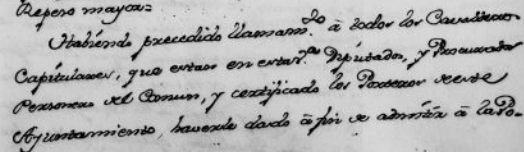 Repeso mayor=
Habiendo precedido llamam.to à todos los Cavalleros
Capitulares, que estan en esta N. Diputados, y Procurador
Personero del Comun, y certificado los Porteros de este
Ayuntamiento, haverle dado à fin de admitir à la Po-